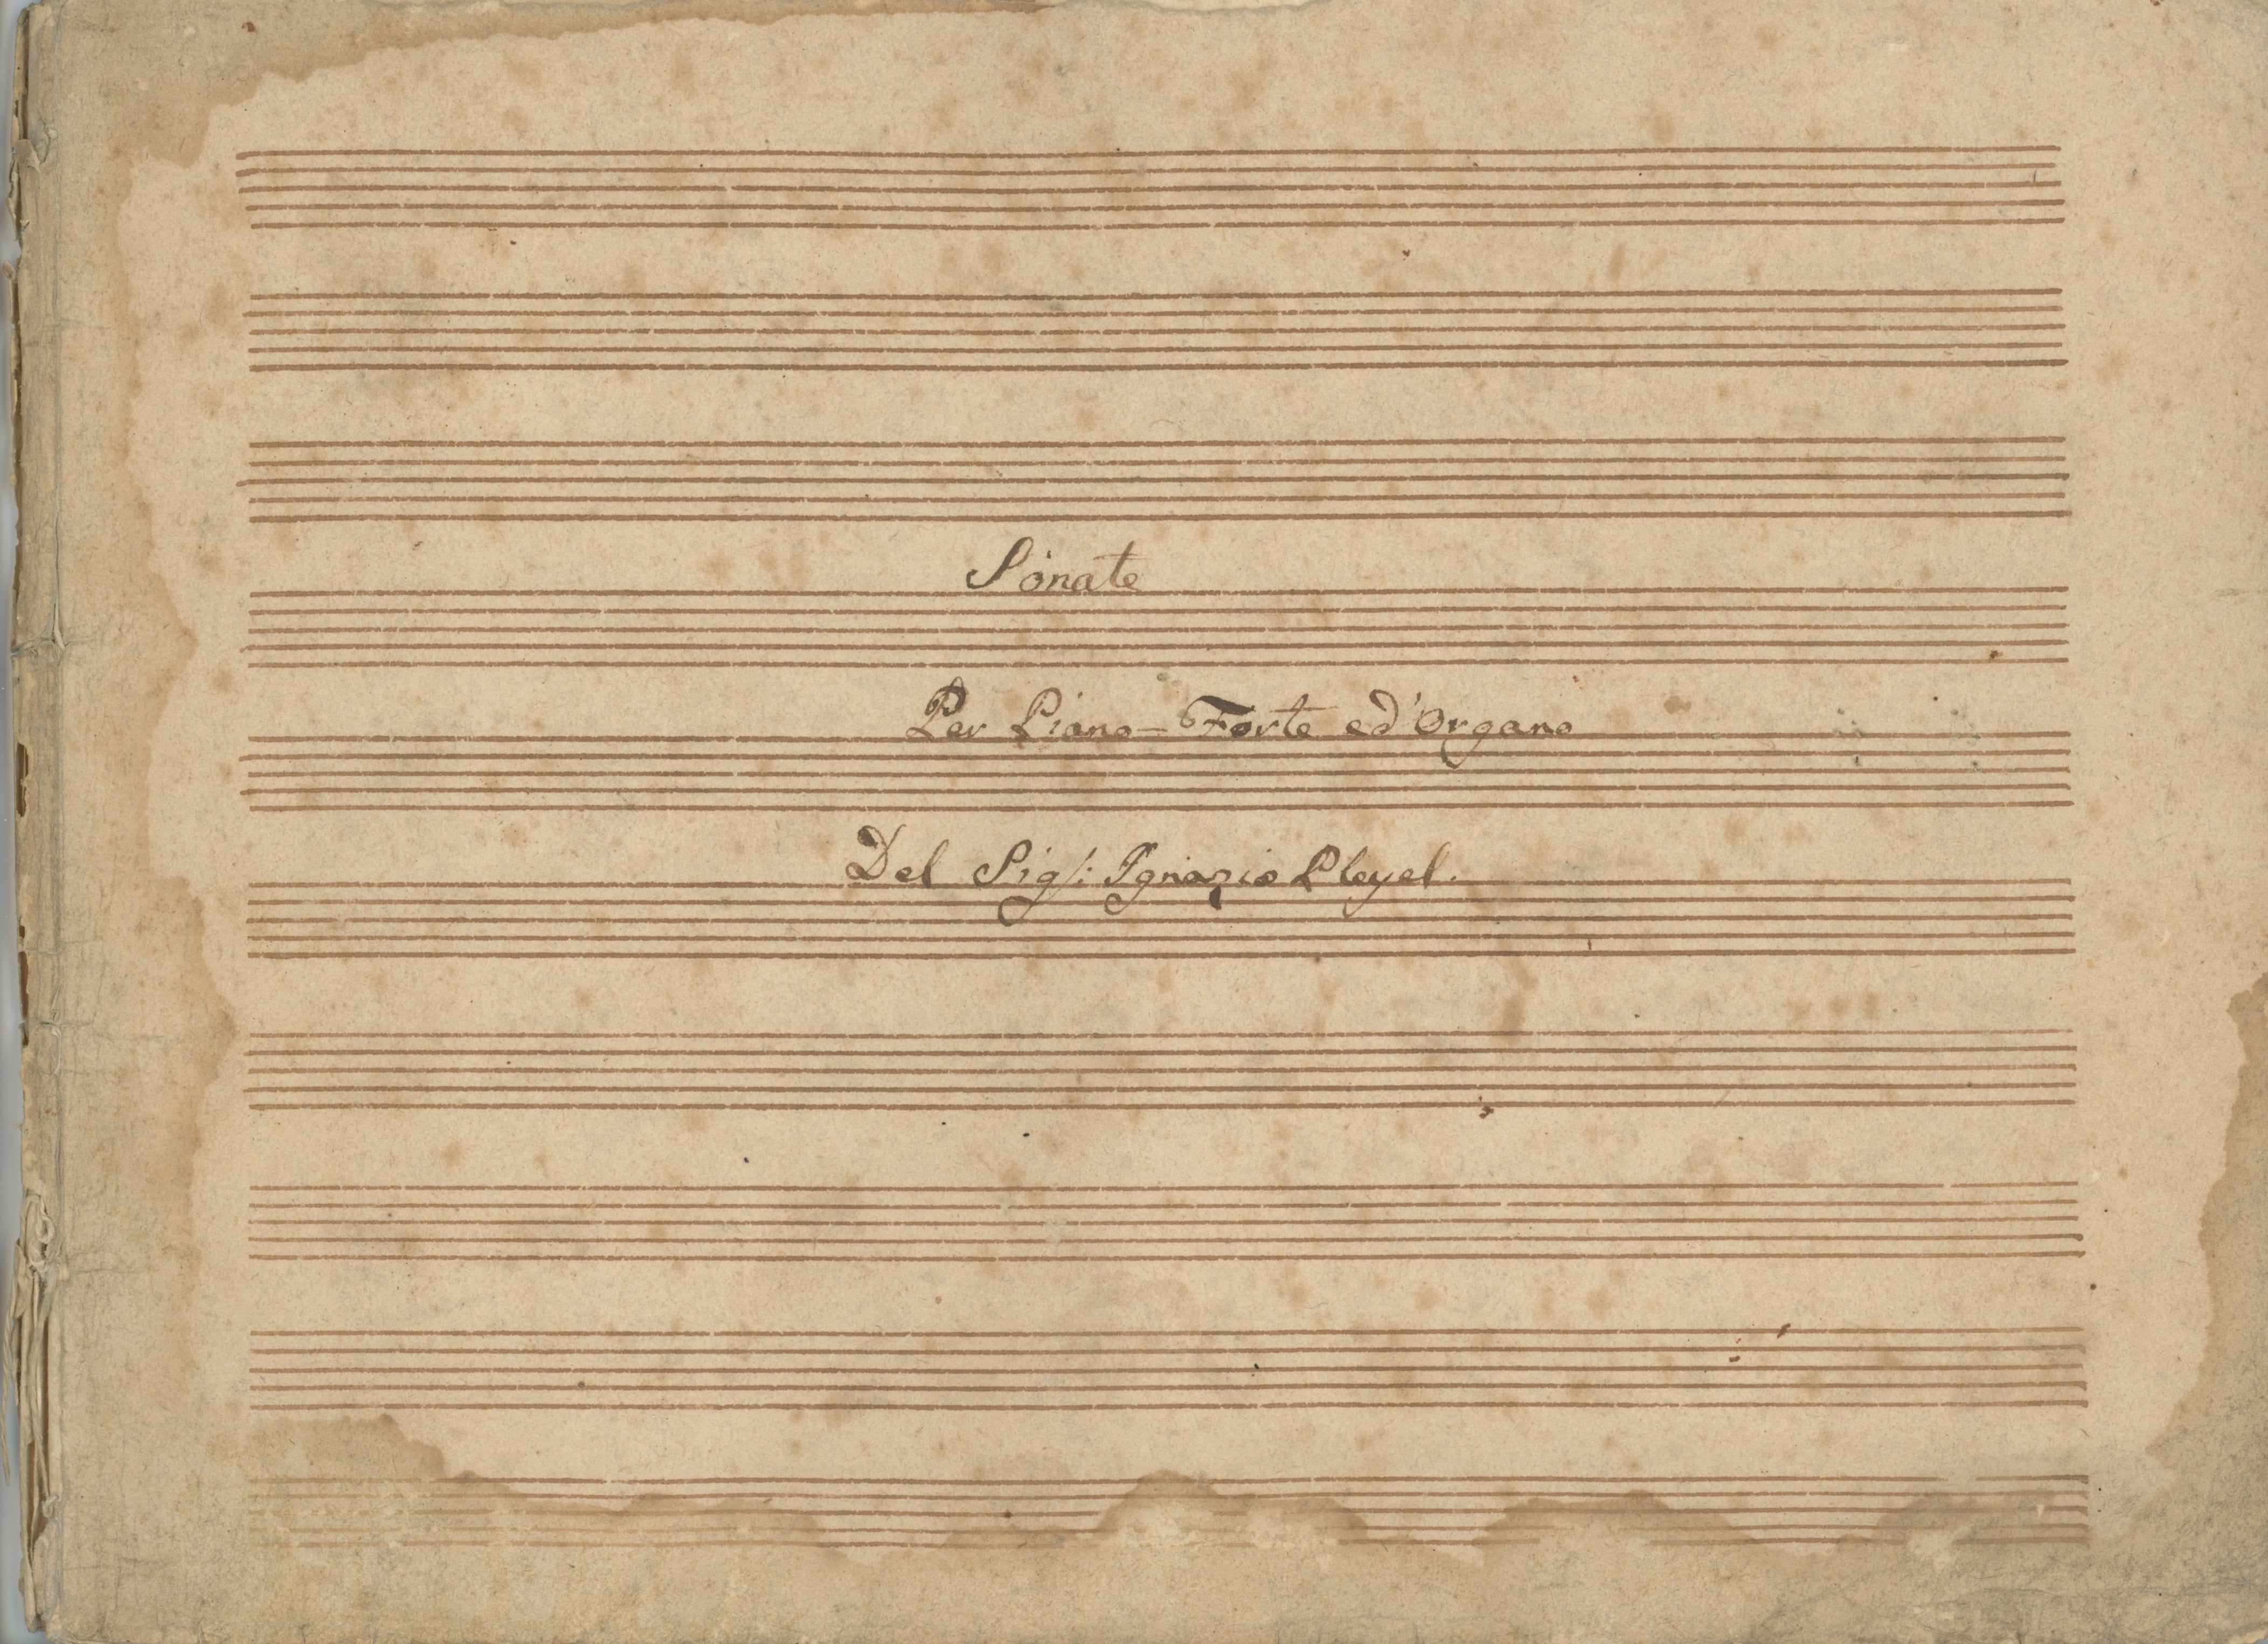 Sonate
Per Piano-Forte ed'Organo
Del Sig/: Ignazio Pleyel.